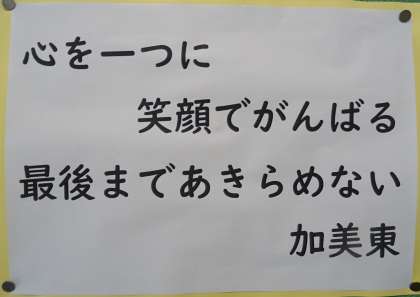 心を一つに
笑顔でがんばる
最後まであきらめない
加美東